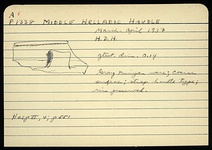 A
P1238 MIDDLE HELLADIC HANDLE
March-April 1937
H.D.H.
Gtest dim. 0.14
Gray Minyan ware; coarse
surface; strap handle type;
rim preserved.